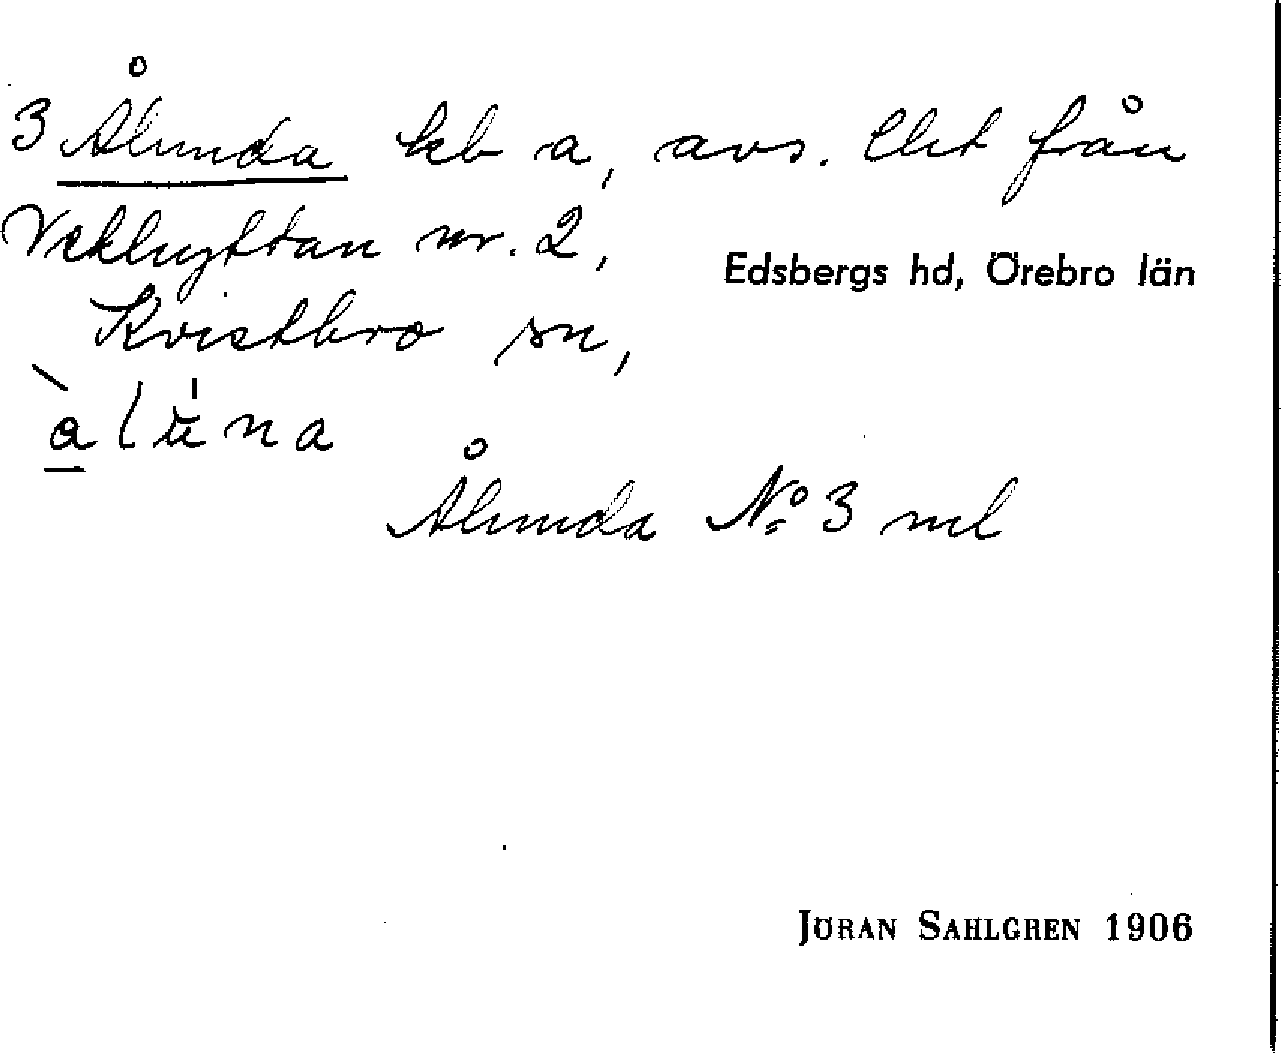 3 Ålunda hb a, avs. lht från
Vekhyttan nr. 2,
Edsbergs hd, Örebro län
Kvistbro sn,
Ålunda No 3 ml
JÖRAN SAHLGREN 1906